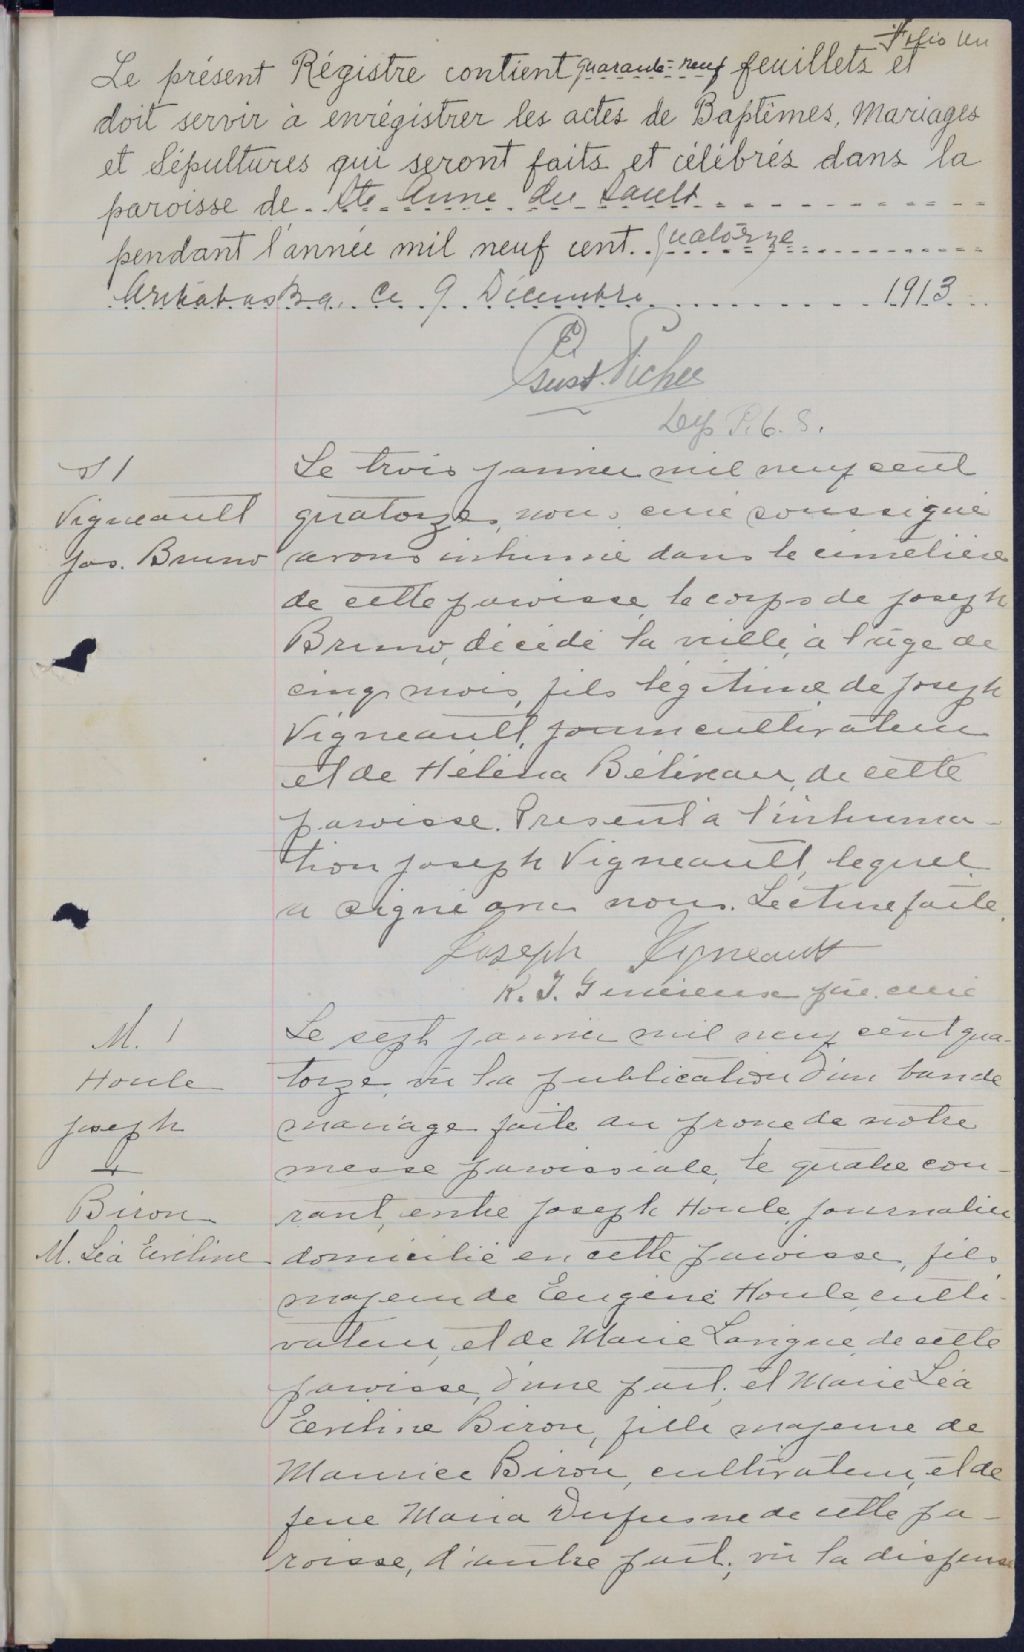 Folio Un
Le présent Régistre contient quarante-neuf feuillets et
doit servir à enrégistrer les actes de Baptêmes, Mariages
et Sépultures qui seront faits et célébrés dans la
paroisse de Ste Anne du Sault
pendant l'année mil neuf cent quatorze
Arthabaska, ce 9 Décembre 1913
Gust. Picher
Dep P. C. S.
S 1
Vigneault
Jos. Bruno
Le trois janvier mil neuf cent
quatorze, nous, curé soussigné
avons inhumé dans le cimetière
de cette paroisse, le corps de Joseph
Bruno, décédé la veille, à l'âge de
cinq mois, fils légitime de Joseph
Vigneault, journ cultivateur
et de Héléna Béliveau, de cette
paroisse. Présent à l'inhuma-
tion Joseph Vigneault, lequel
a signé avec nous. Lecture faite.
Joseph Vigneault
ptre curé
M. 1
Houle
Joseph
+
Biron
M. Léa Eveline
Le sept janvier mil neuf cent qua-
torze, vu la publication d'un ban de
mariage faite au prone de notre
messe paroissiale, le quatre cou-
rant, entre Joseph Houle, journalier
domicilié en cette paroisse, fils
majeur de Eugène Houle, culti-
vateur, et de Marie Lavigne de cette
paroisse, d'une part; et Marie Léa
Eveline Biron, fille majeure de
Maurice Biron, cultivateur, et de
feue Maria Dufresne de cette pa-
roisse, d'autre part; vu la dispense